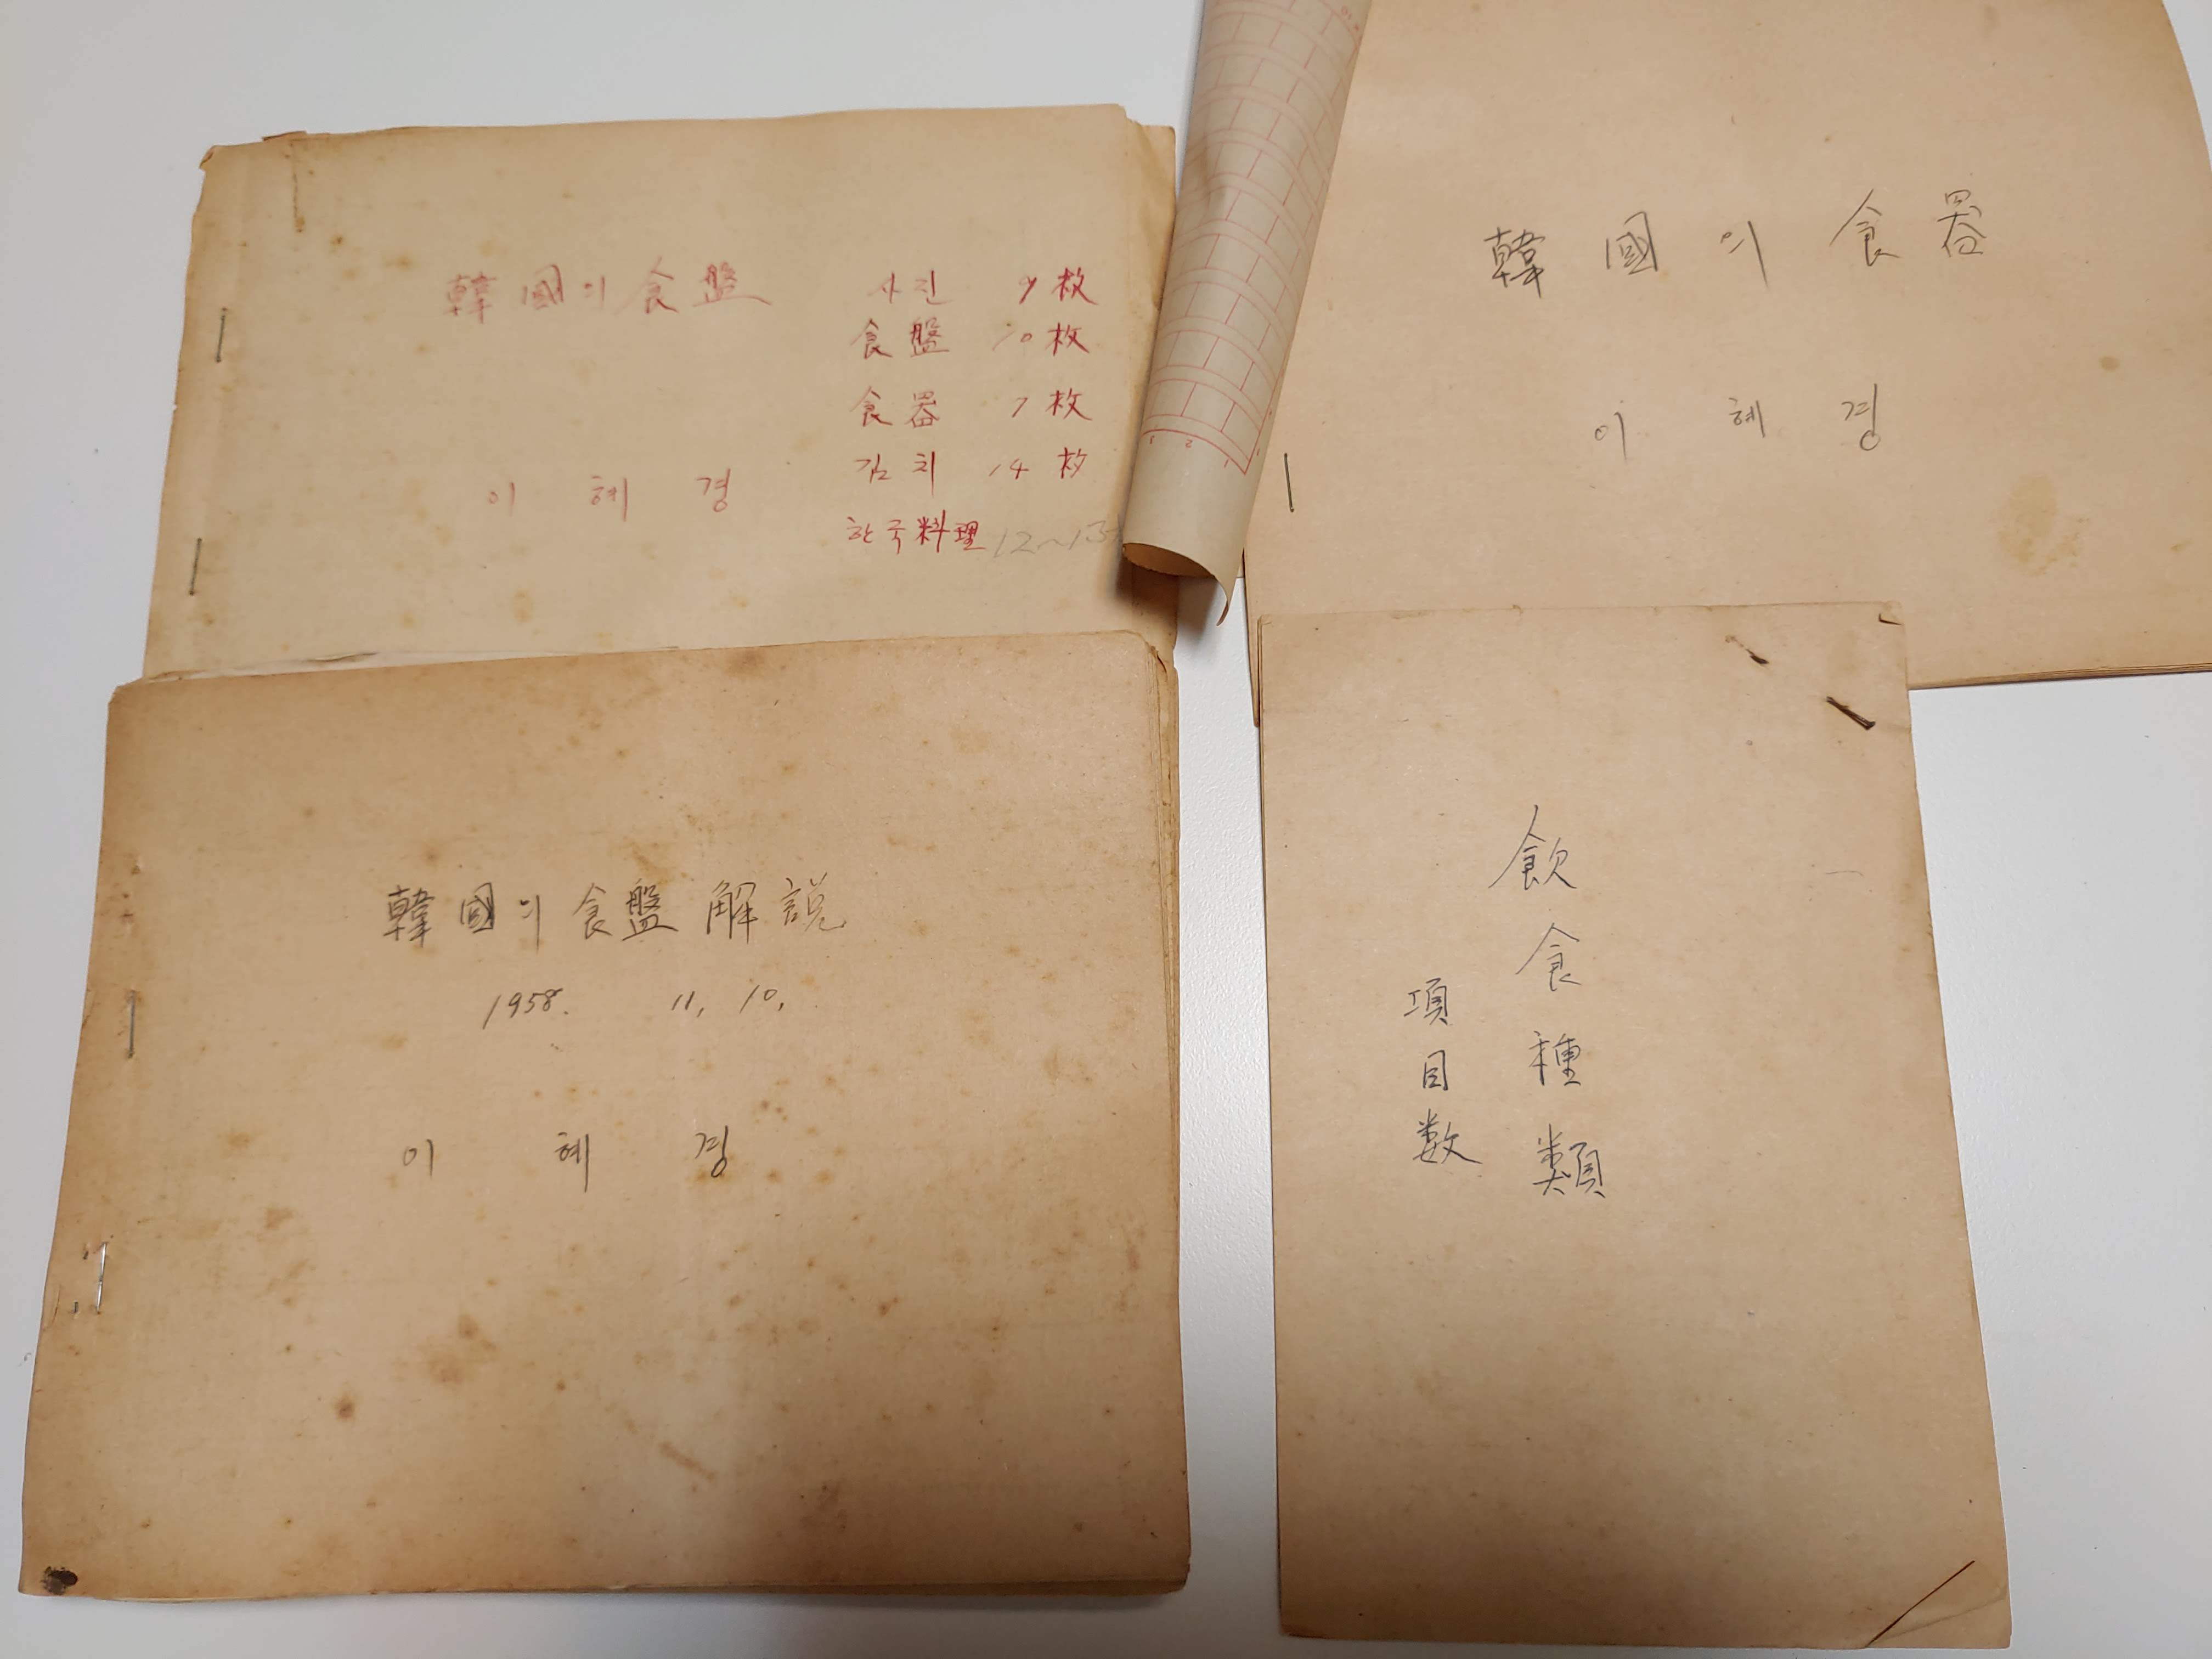 韓國의食盤
사진 9枚
食盤 10枚
食器 7枚
김치 14枚
한국料理 12~13
이혜경
韓國의食器
이혜경
韓國의食盤解説
1958. 11, 10,
이혜경
飮食種類
項目数